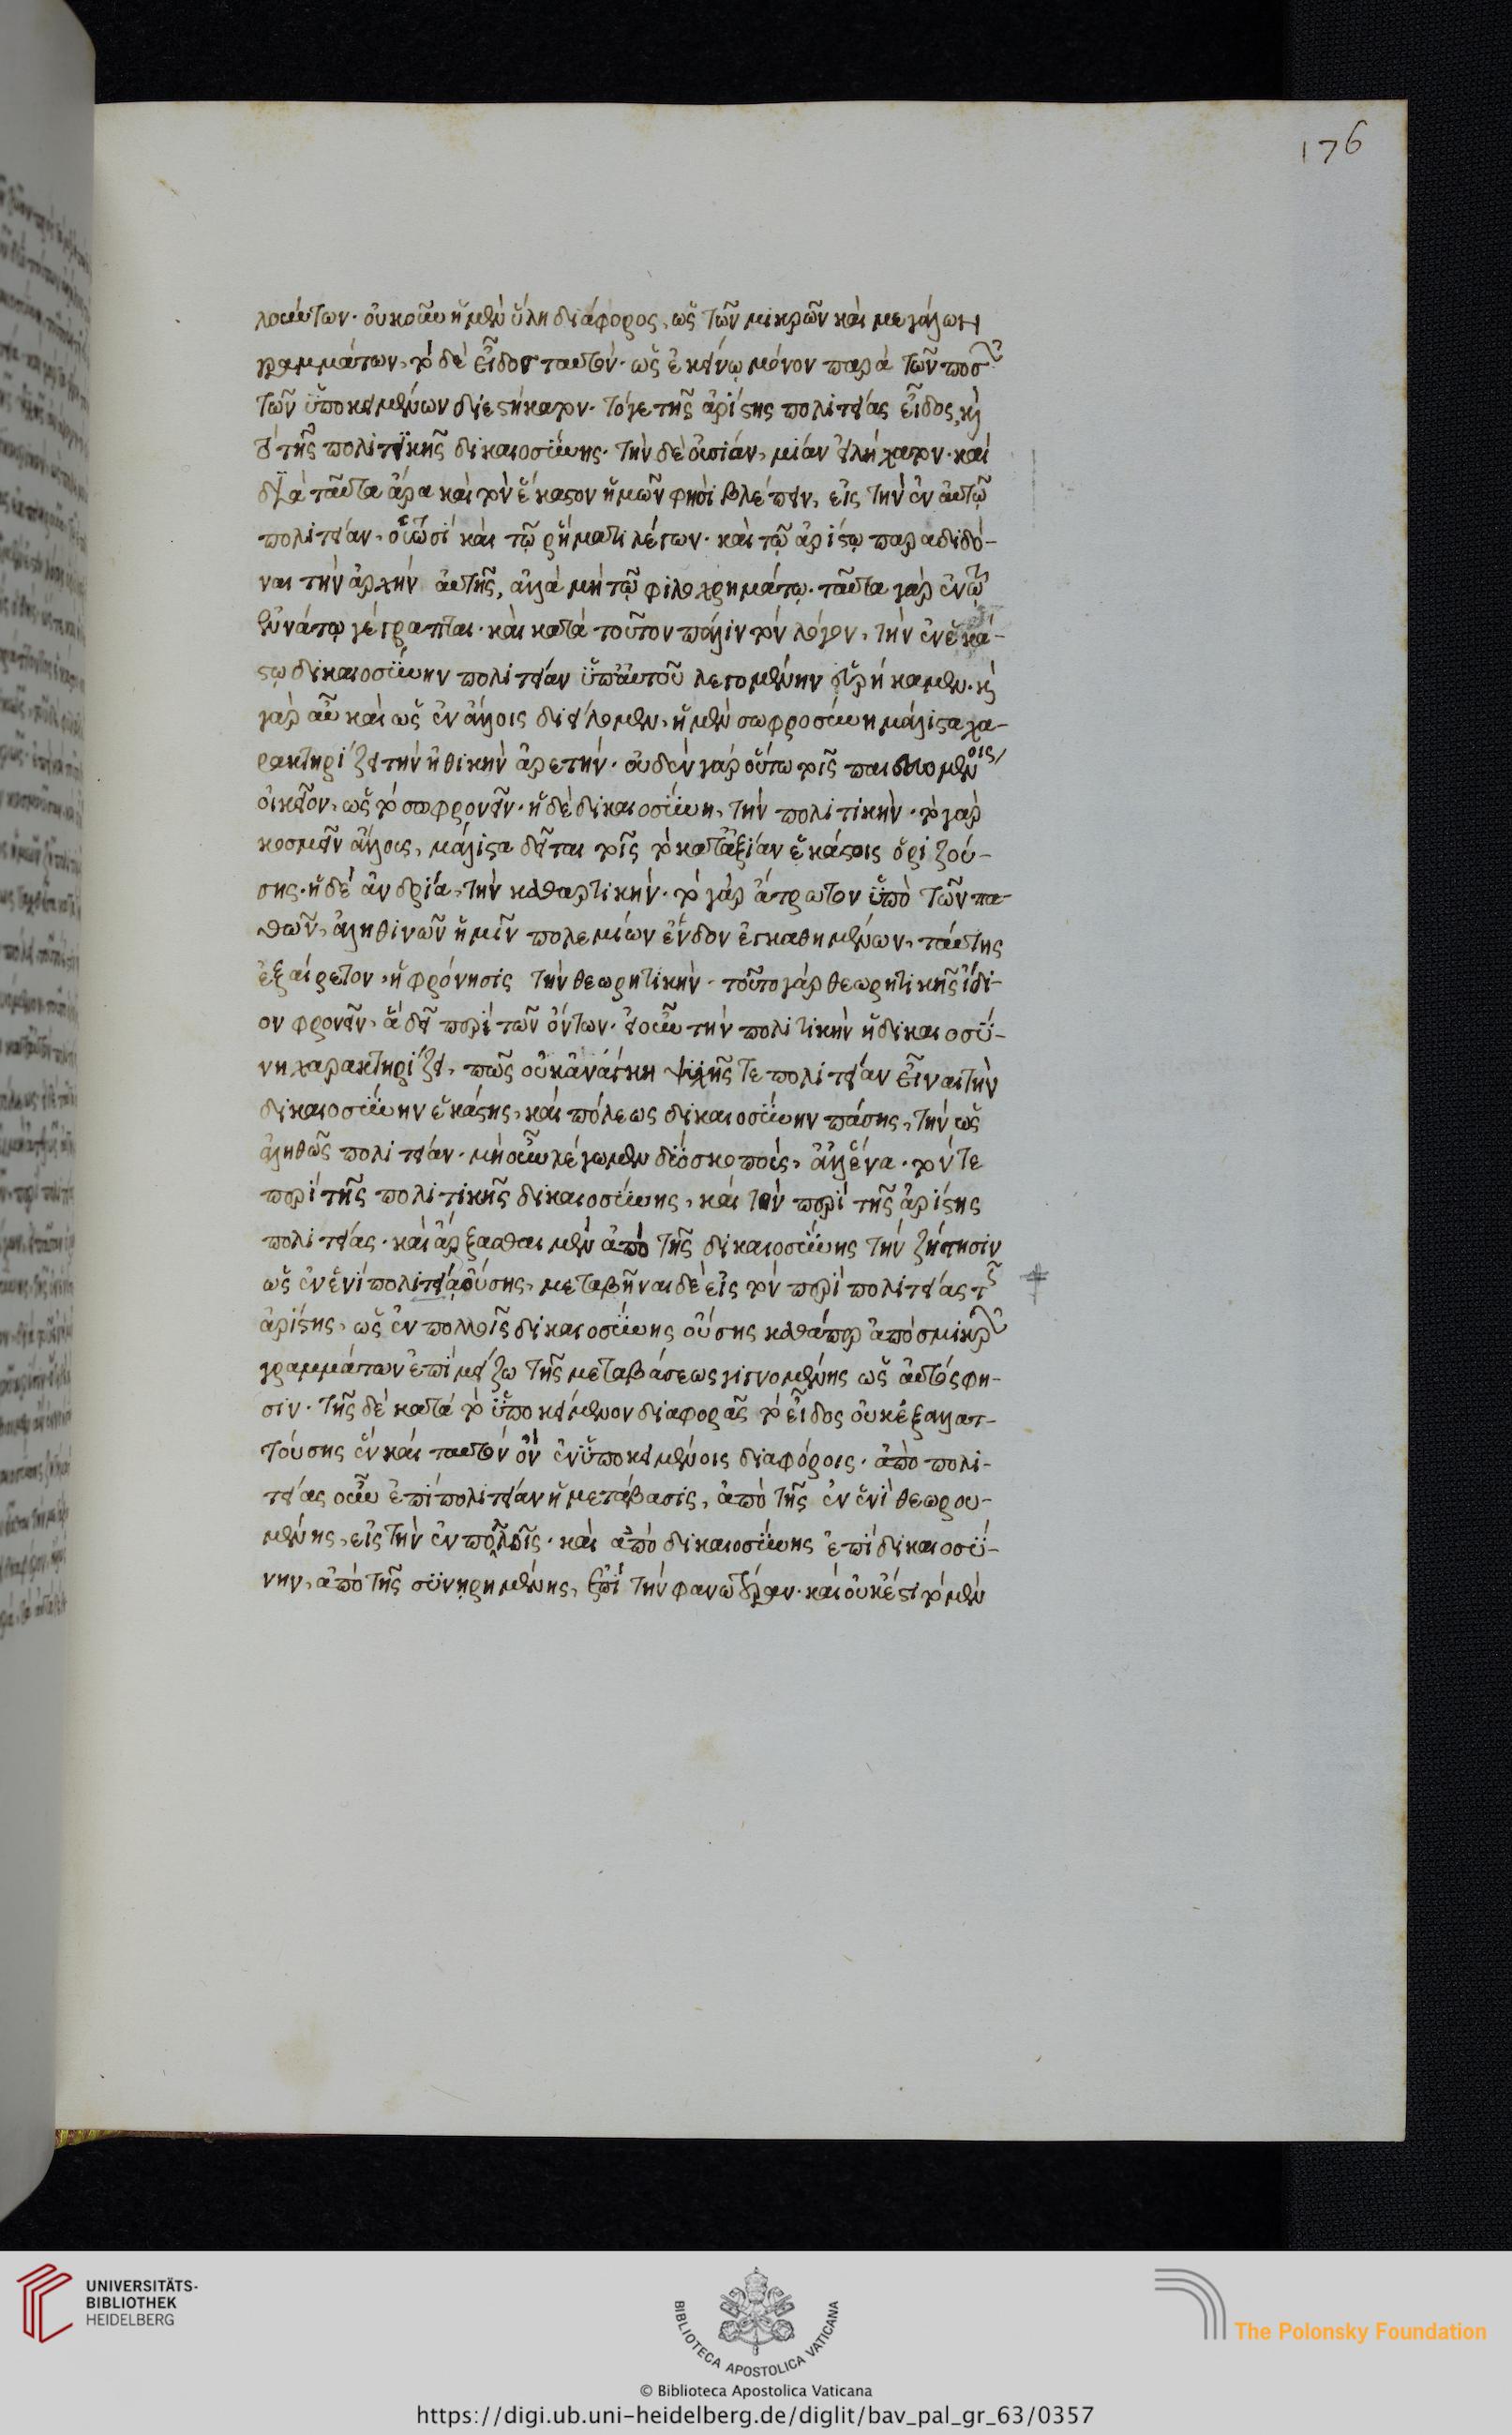 176
λούντων· οὐκοῦν ἡ μὲν ὕλη διάφορος, ὡς τῶν μικρῶν καὶ μεγάλων
γραμμάτων, τὸ δὲ εἶδος ταυτόν· ὡς ἐκείνῳ μόνον παρὰ τῶν ποσῶν
τῶν ὑποκειμένων διεστήκατον· τό γε τῆς ἀρίστης πολιτείας εἶδος, καὶ
τὸ τῆς πολιτικῆς δικαιοσύνης· τὴν δὲ οὐσίαν, μίαν εἰλήχατον· καὶ
διὰ ταῦτα ἄρα καὶ τὸν ἕκαστον ἡμῶν φησὶ βλέπειν, εἰς τὴν ἐν αὐτῷ
πολιτείαν· οὑτωσὶ καὶ τῷ ῥήματι λέγων· καὶ τῷ ἀρίστῳ παραδιδό-
ναι τὴν ἀρχὴν αὐτῆς, ἀλλὰ μὴ τῷ φιλοχρημάτῳ· ταῦτα γὰρ ἐν τῷ
ἐνάτῳ γέγραπται· καὶ κατὰ τοῦτον πάλιν τὸν λόγον, τὴν ἐν ἑκά-
στῳ δικαιοσύνην πολιτείαν ὑπ' αὐτοῦ λεγομένην εὑρήκαμεν· καὶ
γὰρ αὖ καὶ ὡς ἐν ἄλλοις διείλομεν, ἡ μὲν σωφροσύνη μάλιστα χα-
ρακτηρίζει τὴν ἠθικὴν ἀρετήν· οὐδὲν γὰρ οὕτω τοῖς παιδευομένοις
οἰκεῖον, ὡς τὸ σωφρονεῖν· ἡ δὲ δικαιοσύνη, τὴν πολιτικήν· τὸ γὰρ
κοσμεῖν ἄλλους, μάλιστα δεῖται τῆς τὸ κατ' ἀξίαν ἑκάστοις ὁριζού-
σης· ἡ δὲ ἀνδρία, τὴν καθαρτικήν· τὸ γὰρ ἄτρωτον ὑπὸ τῶν πα-
θῶν, ἀληθινῶν ἡμῖν πολεμίων ἔνδον ἐγκαθημένων, ταύτης
ἐξαίρετον, ἡ φρόνησις τὴν θεωρητικήν· τοῦτο γὰρ θεωρητικῆς ἴδι-
ον φρονεῖν, ἃ δεῖ περὶ τῶν ὄντων· εἰ οὖν τὴν πολιτικὴν ἡ δικαιοσύ-
νη χαρακτηρίζει, πῶς οὐκ ἀνάγκη ψυχῆς τε πολιτείαν εἶναι τὴν
δικαιοσύνην ἑκάστης, καὶ πόλεως δικαιοσύνην πάσης, τὴν ὡς
ἀληθῶς πολιτείαν· μὴ οὖν λέγωμεν δύο σκοπούς, ἀλλ' ἕνα· τόν τε
περὶ τῆς πολιτικῆς δικαιοσύνης, καὶ τὸν περὶ τῆς ἀρίστης
πολιτείας· καὶ ἄρξασθαι μὲν ἀπὸ τῆς δικαιοσύνης τὴν ζήτησιν
ὡς ἐν ἑνὶ πολιτείας οὔσης, μεταβῆναι δὲ εἰς τὸν περὶ πολιτείας τῆς
ἀρίστης, ὡς ἐν πολλοῖς δικαιοσύνης οὔσης καθάπερ ἀπὸ σμικρῶν
γραμμάτων ἐπὶ μείζω τῆς μεταβάσεως γιγνομένης ὡς αὐτός φη-
σιν· τῆς δὲ κατὰ τὸ ὑποκείμενον διαφορᾶς τὸ εἶδος οὐκ ἐξαλλατ-
τούσης ἓν καὶ ταυτὸν ὂν ἐν ὑποκειμένοις διαφόροις· ἀπὸ πολι-
τείας οὖν ἐπὶ πολιτείαν ἡ μετάβασις, ἀπὸ τῆς ἐν ἑνὶ θεωρου-
μένης, εἰς τὴν ἐν πολλοῖς· καὶ ἀπὸ δικαιοσύνης ἐπὶ δικαιοσύ-
νην, ἀπὸ τῆς συνῃρημένης, ἐπὶ τὴν φανωτέραν· καὶ οὐκ ἔστι τὸ μὲν
UNIVERSITÄTS-
BIBLIOTHEK
HEIDELBERG
BIBLIOTECA APOSTOLICA VATICANA
The Polonsky Foundation
© Biblioteca Apostolica Vaticana
https://digi.ub.uni-heidelberg.de/diglit/bav_pal_gr_63/0357